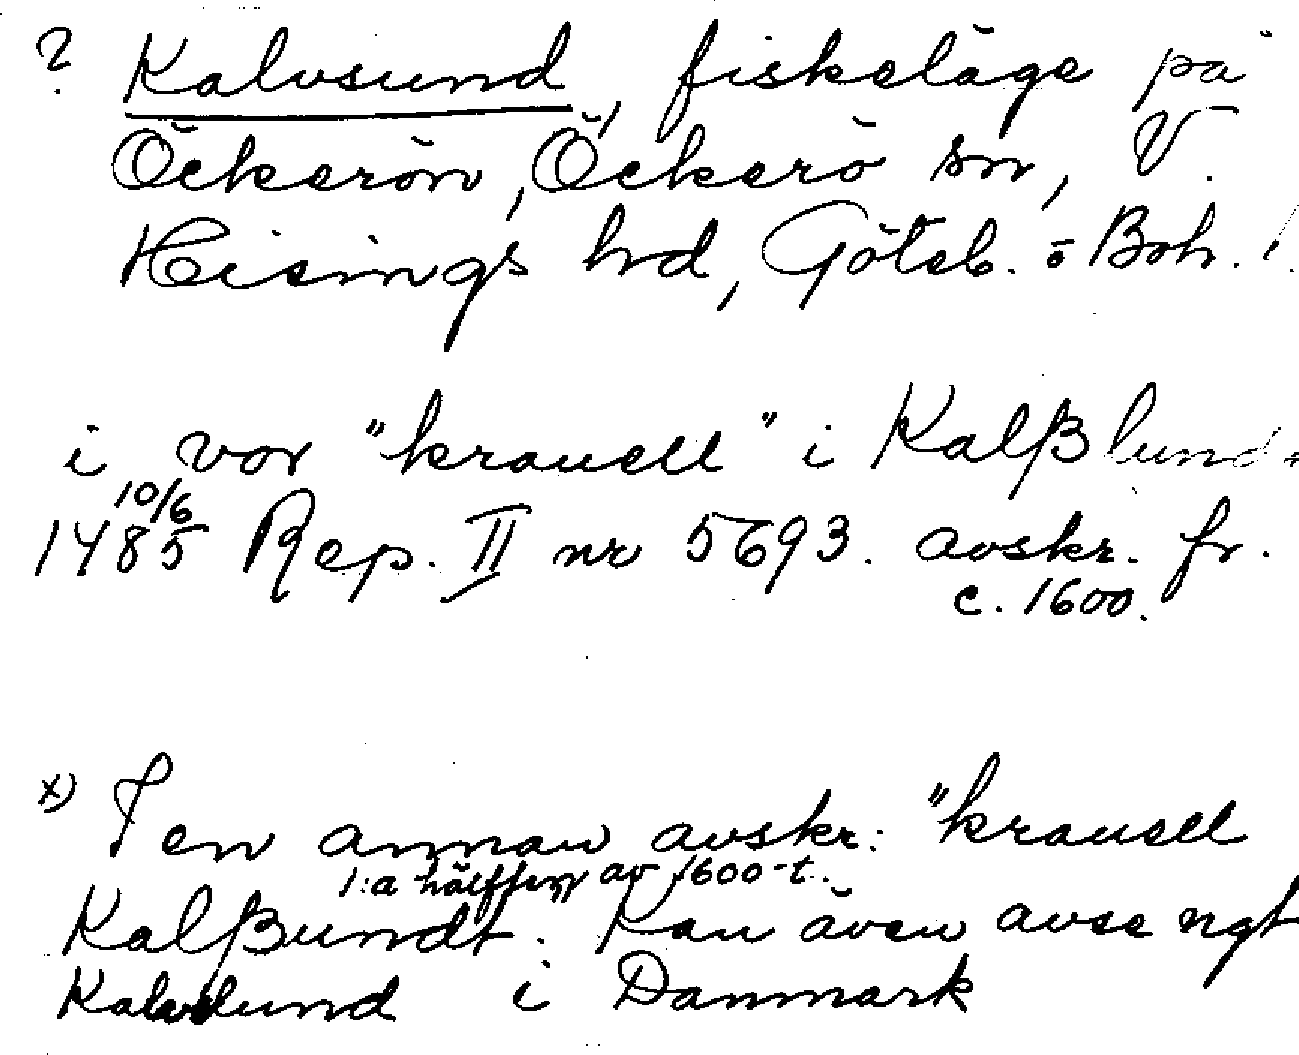 ? Kalvsund, fiskeläge på
Öckerön, Öckerö sn, V.
Hisings hd, Göteb. o Boh. l.
i vor "krauell" i Kalßlund
10/6
1485 Rep. II nr 5693. avskr. fr.
c. 1600.
x) I en annan avskr: "krauell
1:a hälften av 1600-t.
Kalßundt". Kan även avse ngt
Kalvslund i Danmark